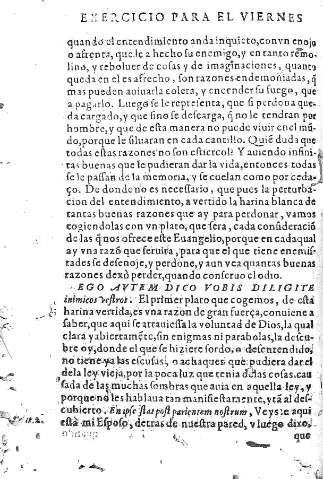 EXERCICIO PARA EL VIERNES
quando el entendimiento anda inquieto, con vn enojo
o afrenta, que le a hecho su enemigo, y en tanto remo-
lino, y reboluer de cosas y de imaginaciones, quanto
queda en el es afrecho, son razones endemoniadas, q̃
mas pueden auiuar la colera, y encender su fuego, que
a pagarlo. Luego se le representa, que si perdona que-
da cargado, y que sino se descarga, q̃ no le tendran por
hombre, y que de esta manera no puede viuir en el mũ-
do, porque le siluaran en cada cantillo. Quiẽ duda que
todas estas razones no son estiercol? Y auiendo infini-
tas buenas que le pudieran dar la vida, entonces todas
se le passan de la memoria, y se cuelan como por ceda-
ço. De donde es necessario, que pues la perturba-
cion del entendimiento, a vertido la harina blanca de
tantas buenas razones que ay para perdonar, vamos
cogiendolas con vn plato, que sera, cada consideració
de las q̃ nos ofrece este Euangelio, porque en cada qual
ay vna razó que seruira, para que el que tiene enemis-
tades se desenoje, y perdone, y aun vea quantas buenas
razones dexò perder, quando conseruo el odio.
EGO AVTEM DICO VOBIS DILIGITE
inimicos vestros. El primer plato que cogemos, de esta
harina vertida, es vna razon de gran fuerça, conuiene a
saber, que aqui se atrauiessa la voluntad de Dios, la qual
clara y abiertamẽte, sin enigmas ni parabolas, la descu-
bre oy, donde el que se hiziere sordo, o desentendido,
no tiene ya las escusas, o achaques que pudiera dar el
de la ley vieja, por la poca luz que tenia destas cosas, cau
sada de las muchas sombras que auia en aquella ley, y
porque no les hablaua tan manifiestamente, ytã al des-
cubierto. En ipse stat post parietem nostrum, Veys te aqui
està mi Esposo, detras de nuestra pared, y luego dixo,
que